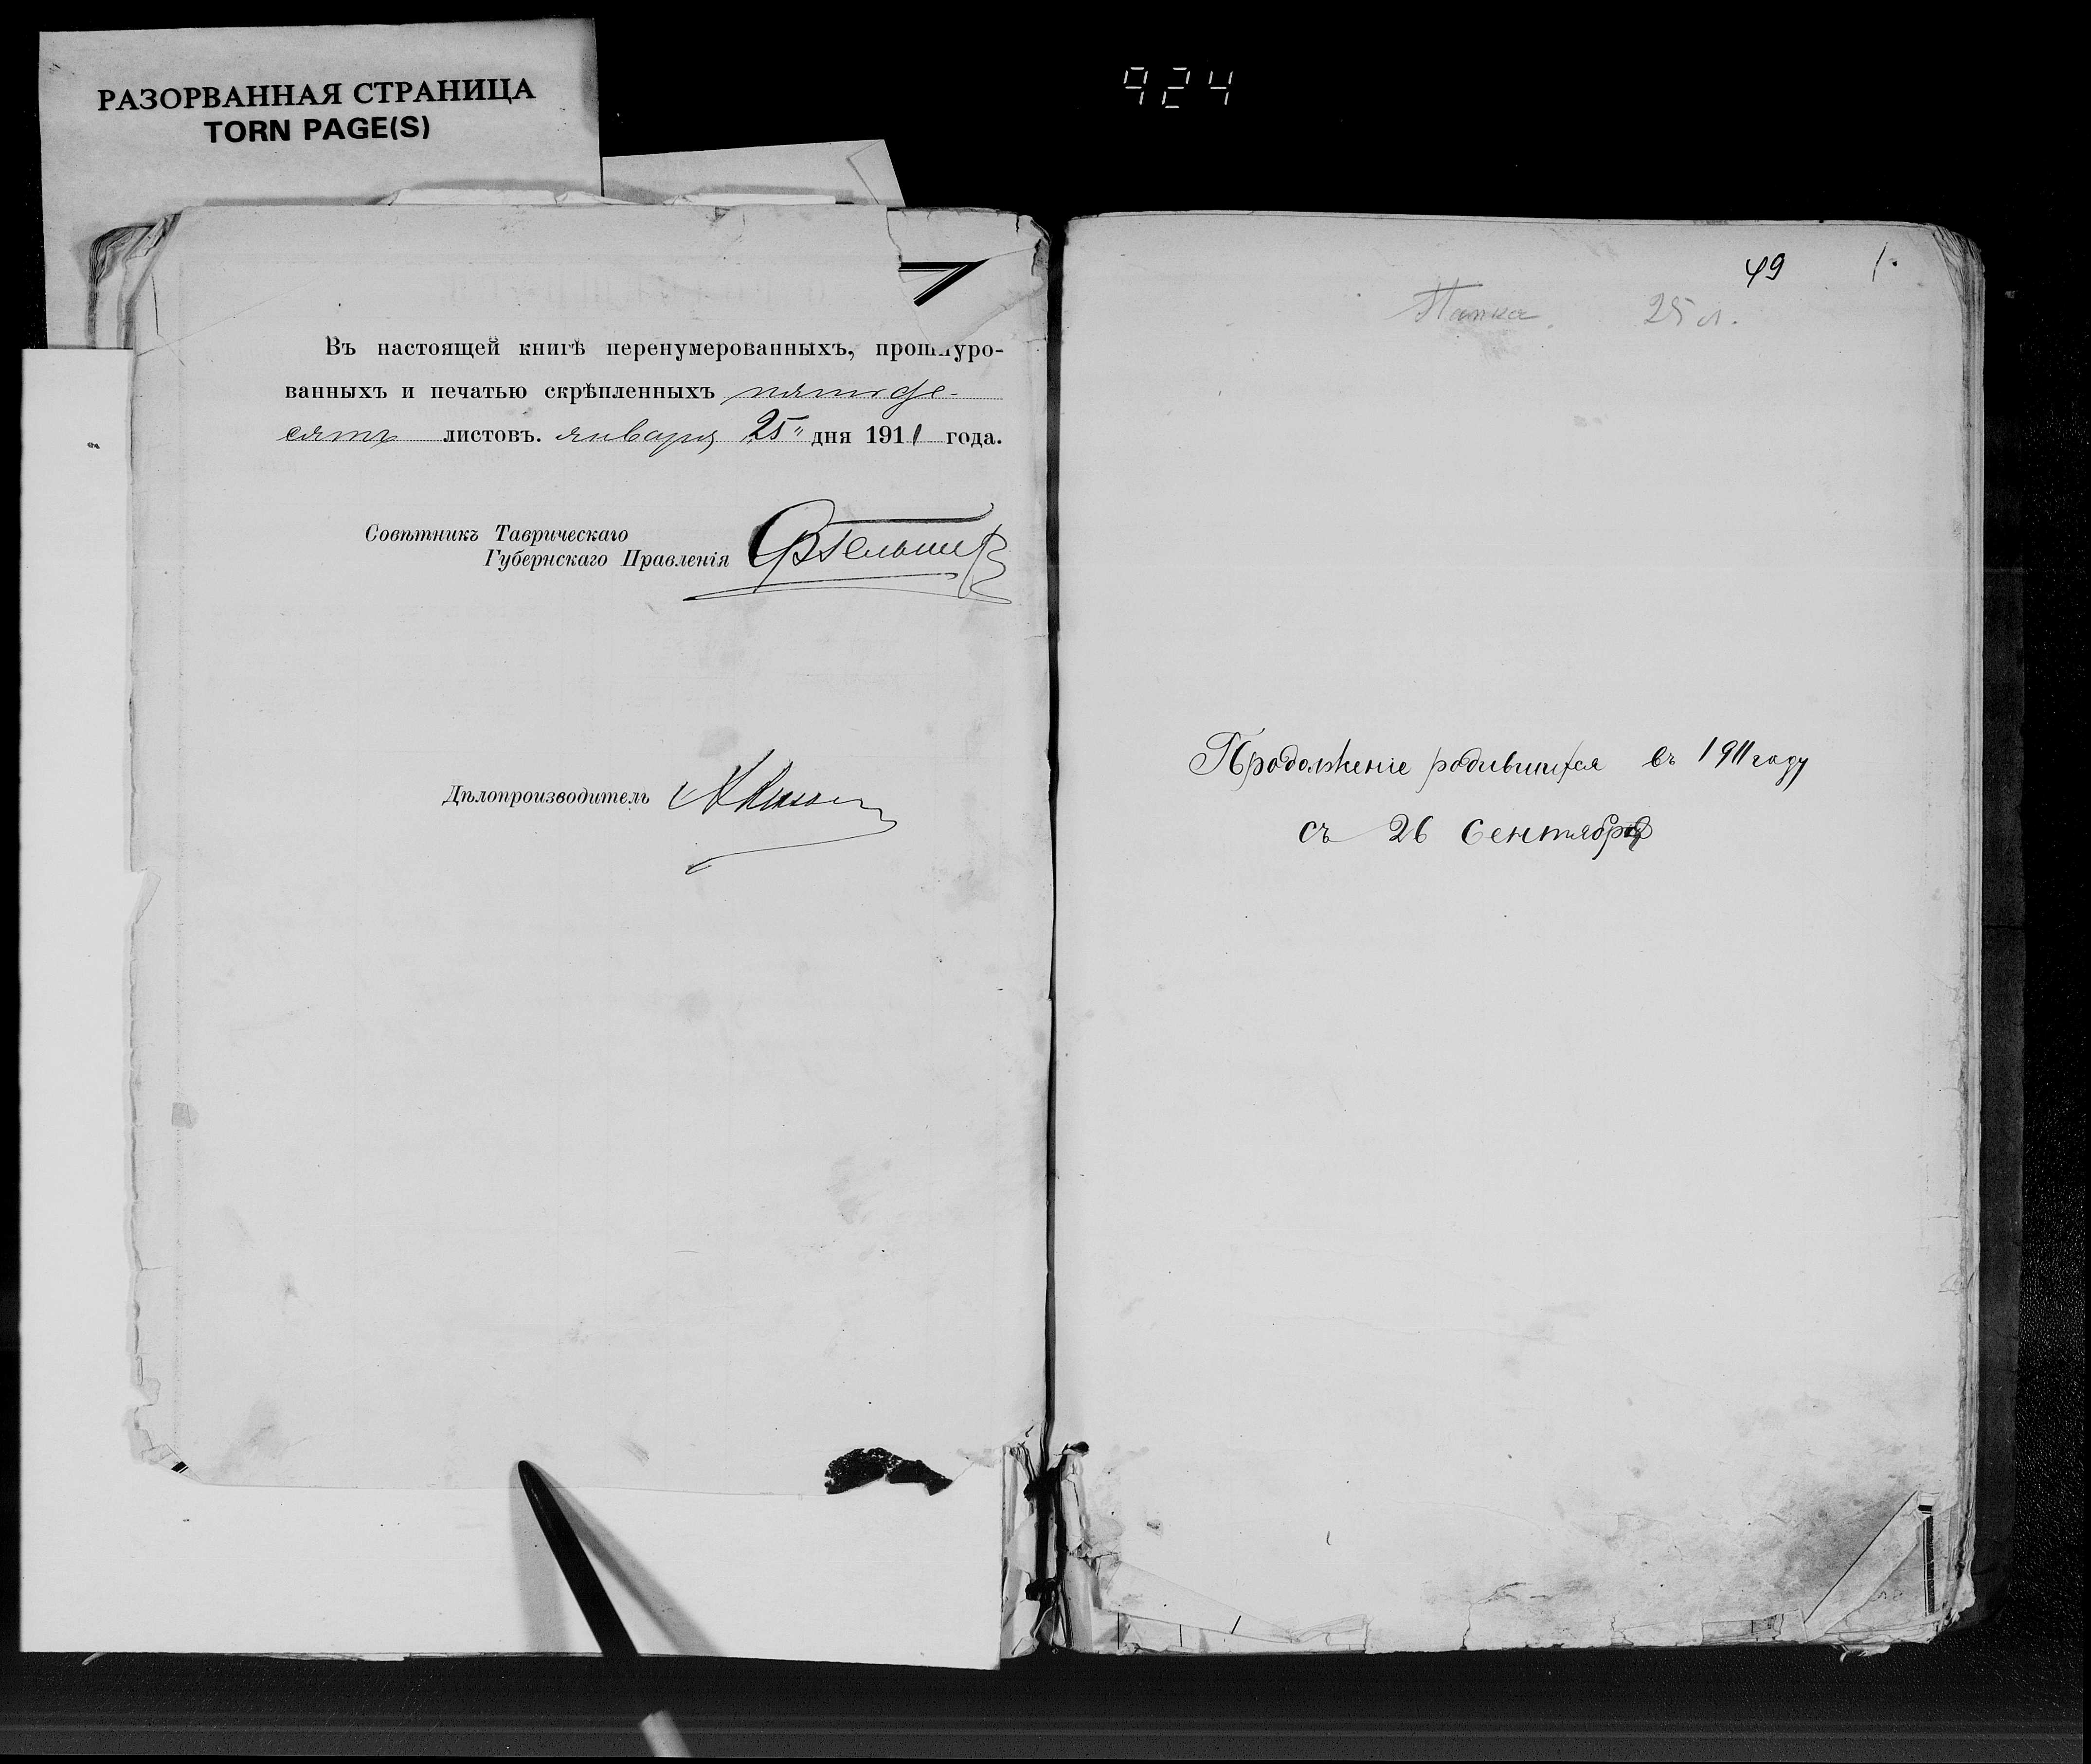 924
РАЗОРВАННАЯ СТРАНИЦА
TORN PAGE(S)
Въ настоящей книгѣ перенумерованныхъ, прошнуро-
ванныхъ и печатью скрѣпленныхъ пятиде-
сятъ листовъ. января 25" дня 1911 года.
Совѣтникъ Таврическаго
Губернскаго Правленія
Дѣлопроизводитель
49 1.
Папка 25 л.
Продолженіе родившихся въ 1911 году
съ 26 Сентября